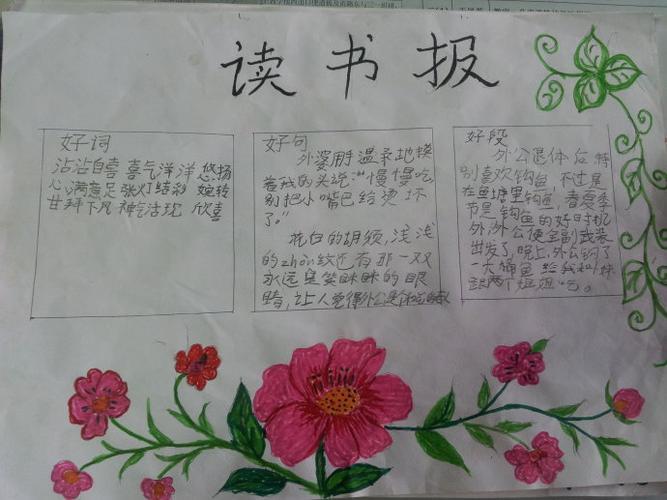 读书报
好词
沾沾自喜 喜气洋洋 悠扬
心满意足 张灯结彩 婉转
甘拜下风 神气活现 欣喜
好句
外婆用手温柔地摸
着我的头说:“慢慢吃
别把小嘴巴给烫坏
了。”
花白的胡须,浅浅
的zhòu纹还有那一双
永远是笑眯眯的眼
睛,让人觉得外公是
好段
外公退休后 特
别喜欢钓鱼 不过是
在鱼塘里钓鱼 春夏季
节是钓鱼的好时机
外公便全副武装
出发了,晚上,外公钓了
一大桶鱼 给我和
跟两个姐姐吃。